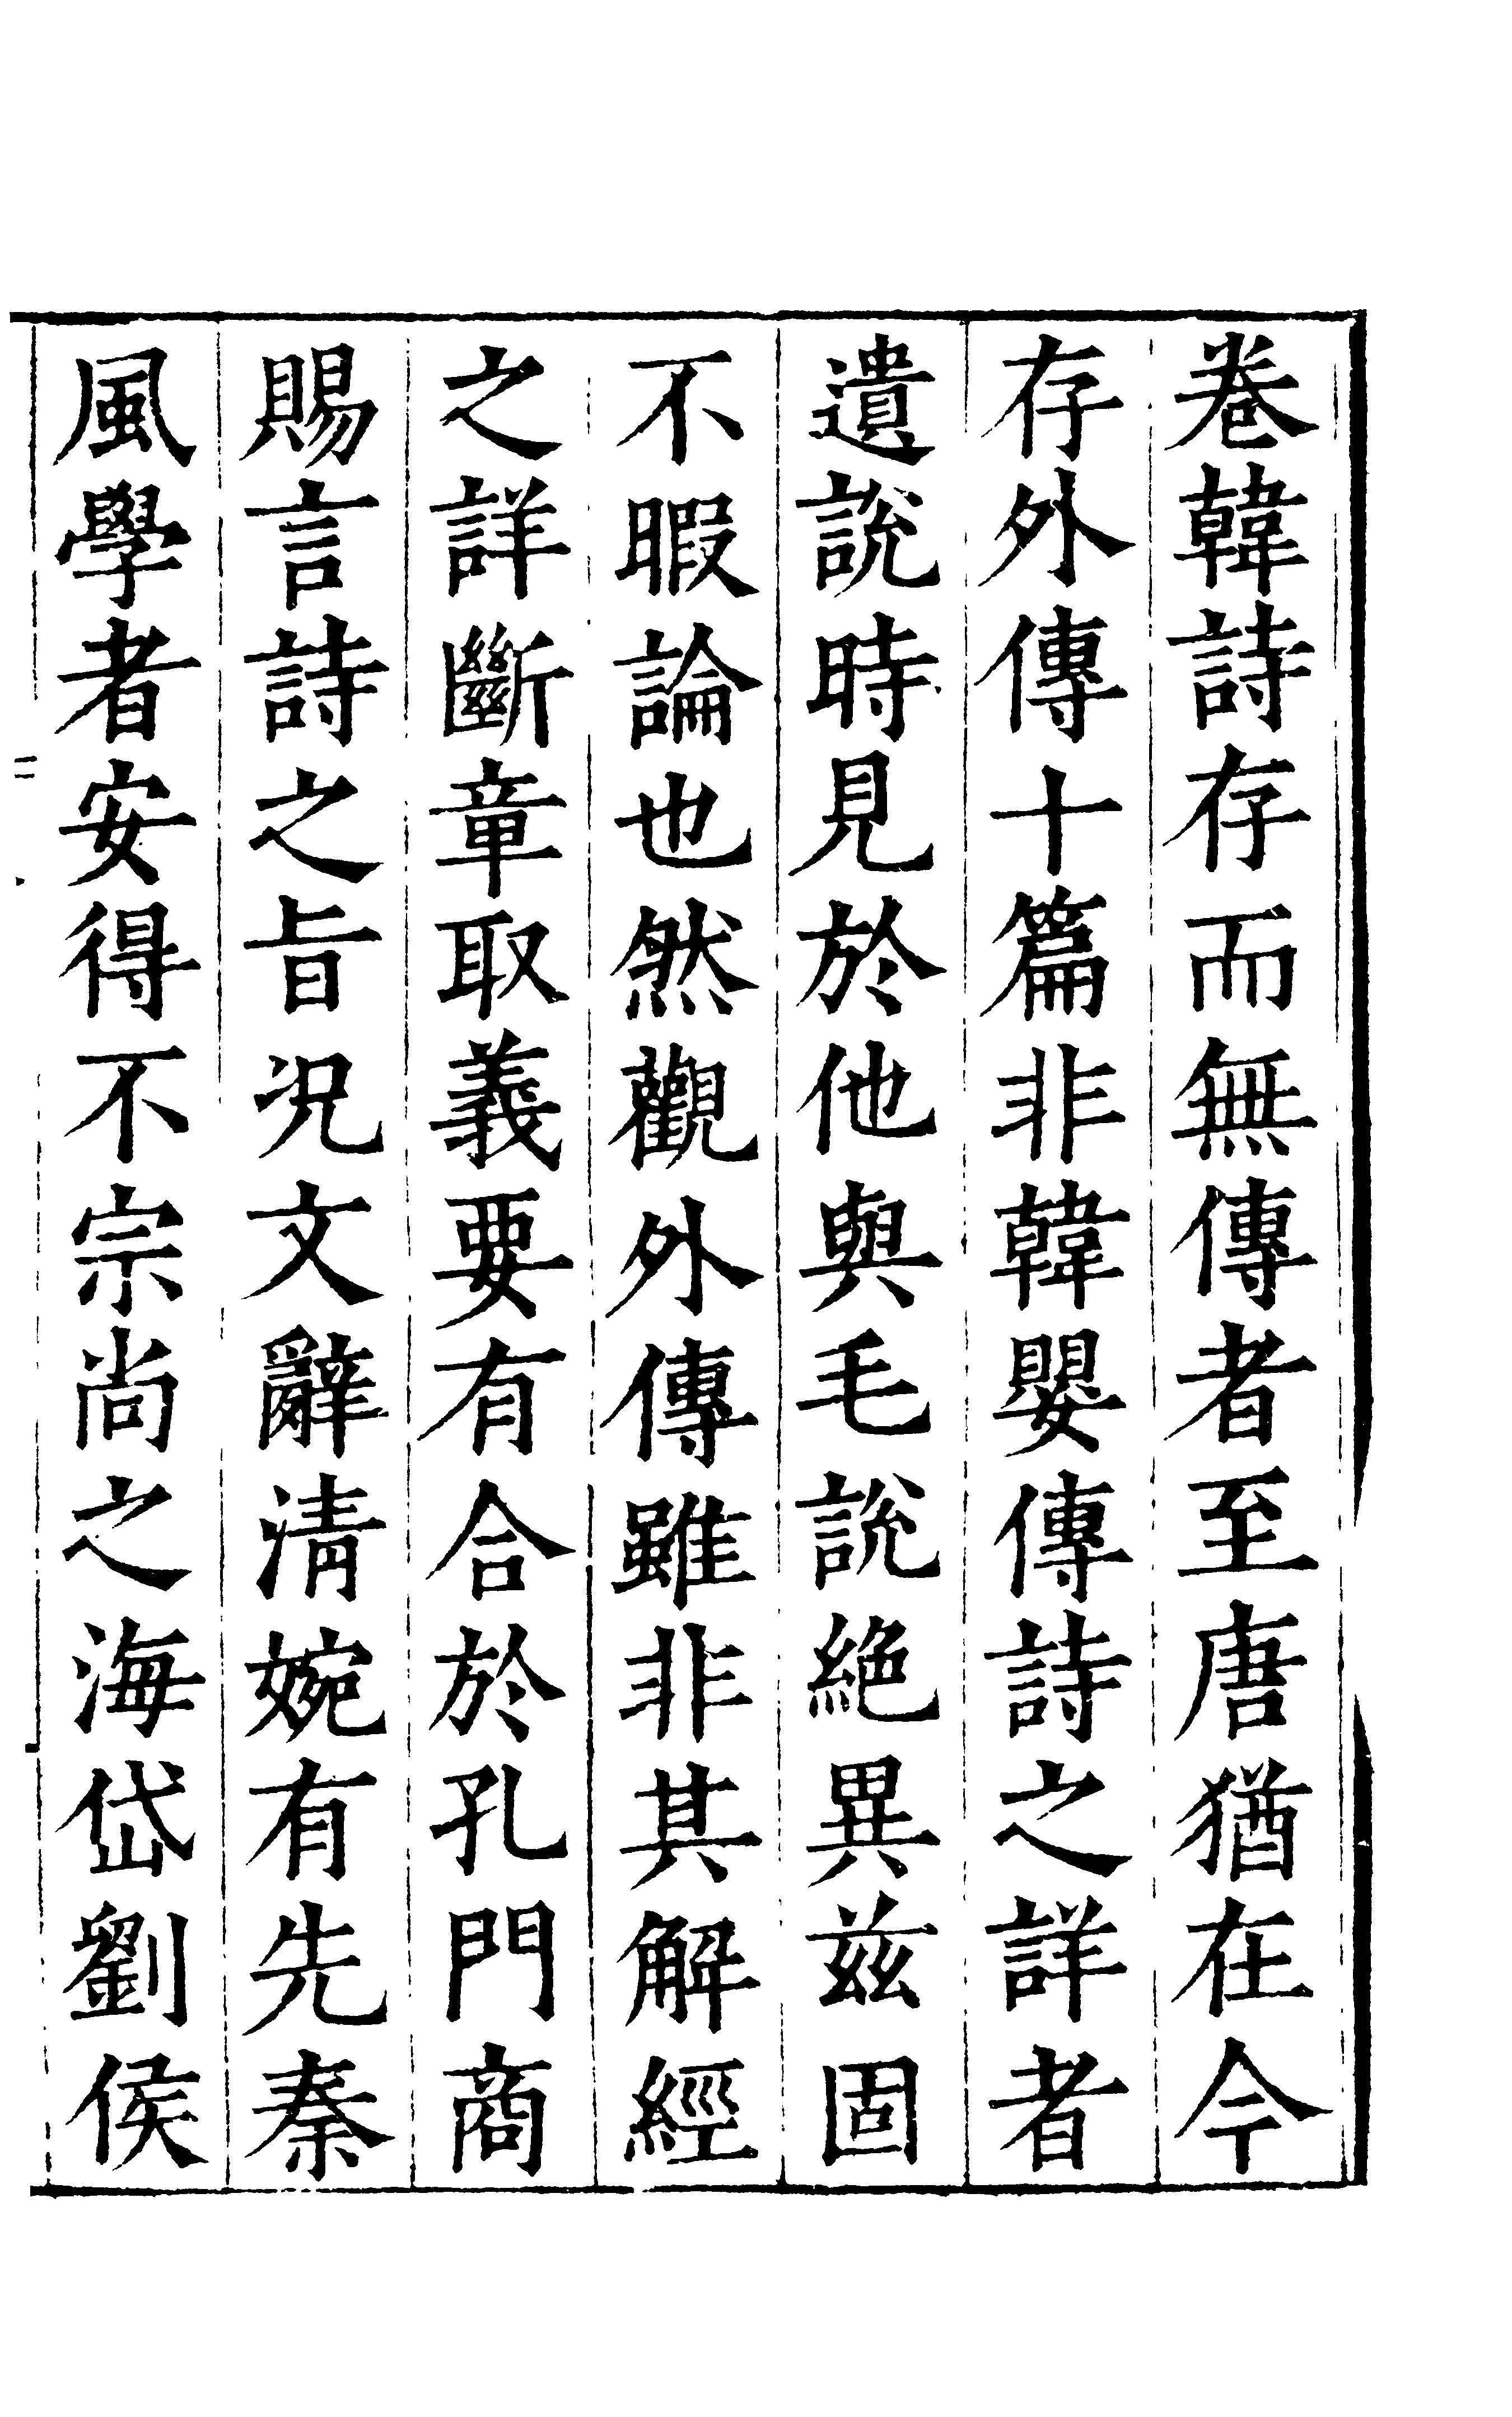 卷韓詩存而無傳者至唐猶在今
存外傳十篇非韓嬰傳詩之詳者
遺說時見於他與毛說絕異茲固
不暇論也然觀外傳雖非其解經
之詳斷章取義要有合於孔門商
賜言詩之旨況文辭清婉有先秦
風學者安得不宗尚之海岱劉侯